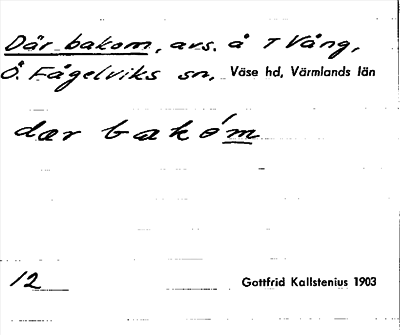 Där bakom, avs. å T Vång,
Ö. Fågelviks sn, Väse hd, Värmlands län
dær bakóm
12
Gottfrid Kallstenius 1903